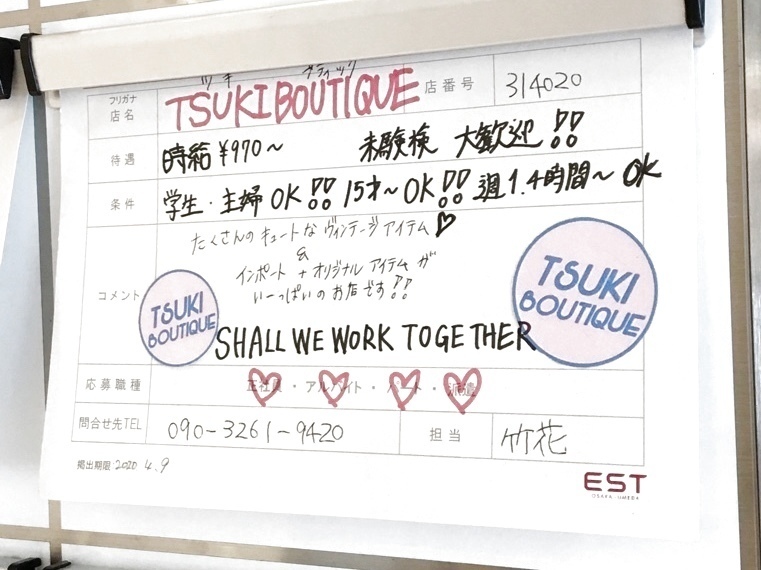 ツキ ブティック
フリガナ
店名 TSUKI BOUTIQUE 店番号 314020
待遇 時給¥970〜 未験検 大歓迎!!
条件 学生・主婦OK!! 15才〜OK!! 週1.4時間〜OK
たくさんのキュートなヴィンテージアイテム♡
&
コメント インポート+オリジナルアイテムが
いーっぱいのお店です!!
TSUKI BOUTIQUE
TSUKI BOUTIQUE
SHALL WE WORK TOGETHER
応募職種 正社員・アルバイト・パート・派遣
問合せ先TEL 090-3261-9420 担当 竹花
掲出期限 2020 4.9
EST
OSAKA UMEDA